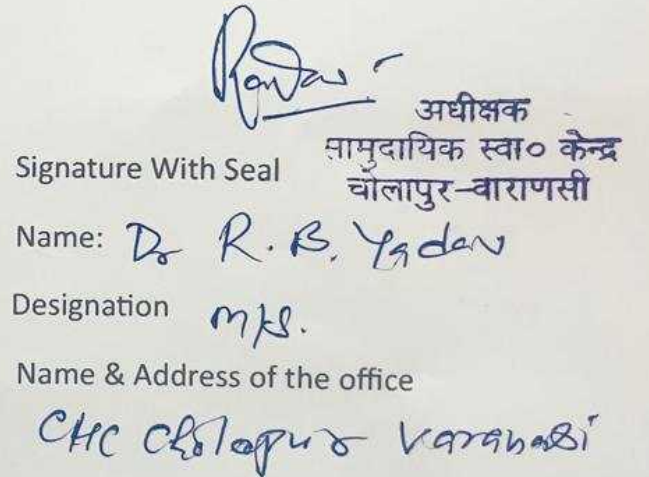 अधीक्षक
सामुदायिक स्वा० केन्द्र
चोलापुर-वाराणसी
Signature With Seal
Name: Dr R. B. Yadav
Designation
Name & Address of the office
CHC Cholapur Varanasi